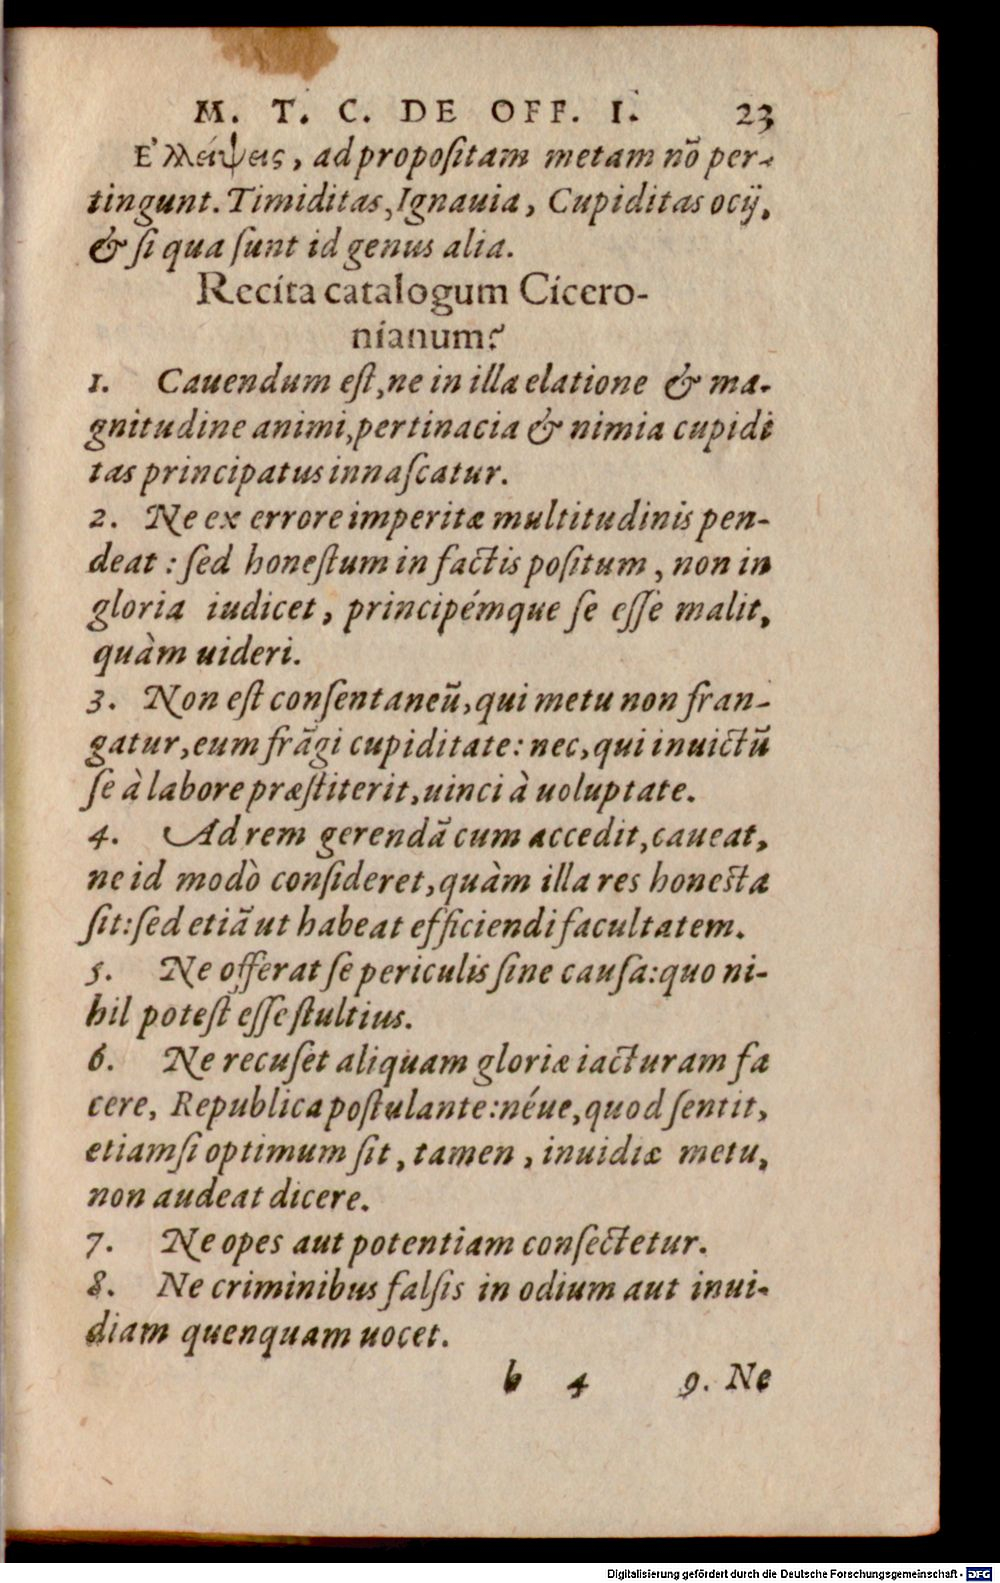 M. T. C. DE OFF. I. 23
Ε᾿λλείψεις, ad propoſitam metam nõ per-
tingunt. Timiditas, Ignauia, Cupiditas ocij,
& ſi qua ſunt id genus alia.
Recita catalogum Cicero-
nianum?
1. Cauendum eſt, ne in illa elatione & ma-
gnitudine animi, pertinacia & nimia cupidi
tas principatus innaſcatur.
2. Ne ex errore imperitæ multitudinis pen-
deat: ſed honeſtum in factis poſitum, non in
gloria iudicet, principémque ſe eſſe malit,
quàm uideri.
3. Non eſt conſentaneũ, qui metu non fran-
gatur, eum frãgi cupiditate: nec, qui inuictũ
ſe à labore præſtiterit, uinci à uoluptate.
4. Ad rem gerendã cum accedit, caueat,
ne id modò conſideret, quàm illa res honeſta
ſit: ſed etiã ut habeat efficiendi facultatem.
5. Ne offerat ſe periculis ſine cauſa: quo ni-
hil poteſt eſſe ſtultius.
6. Ne recuſet aliquam gloriæ iacturam fa
cere, Republica poſtulante: néue, quod ſentit,
etiamſi optimum ſit, tamen, inuidiæ metu,
non audeat dicere.
7. Ne opes aut potentiam conſectetur.
8. Ne criminibus falſis in odium aut inui-
diam quenquam uocet.
b 4 9. Ne
Digitalisierung gefördert durch die Deutsche Forschungsgemeinschaft - DFG